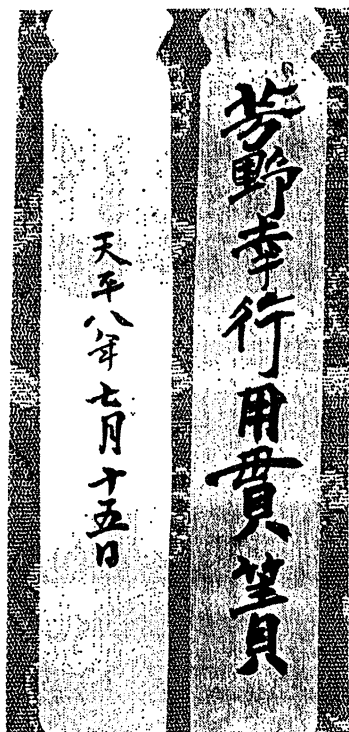 芳野幸行用貫簀
天平八年七月十五日